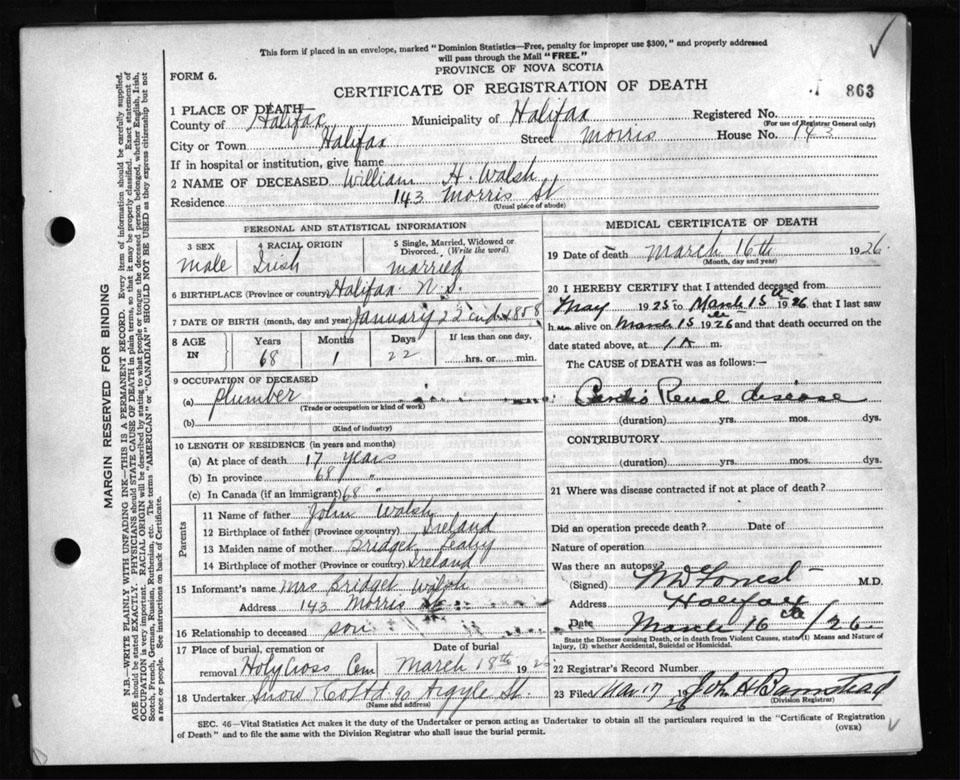 This form if placed in an envelope, marked "Dominion Statistics—Free, penalty for improper use $300," and properly addressed
will pass through the Mail "FREE."
PROVINCE OF NOVA SCOTIA
FORM 6.
CERTIFICATE OF REGISTRATION OF DEATH
863
1 PLACE OF DEATH—
County of Halifax Municipality of Halifax Registered No.
(For use of Registrar General only)
City or Town Halifax Street Morris House No. 143
If in hospital or institution, give name
2 NAME OF DECEASED William H. Walsh
Residence 143 Morris St
(Usual place of abode)
PERSONAL AND STATISTICAL INFORMATION
3 SEX 4 RACIAL ORIGIN 5 Single, Married, Widowed or Divorced. (Write the word)
male Irish married
6 BIRTHPLACE (Province or country) Halifax N.S.
7 DATE OF BIRTH (month, day and year) January 22nd 1858
8 AGE IN Years Months Days If less than one day,
68 1 22 hrs. or min.
9 OCCUPATION OF DECEASED
(a) Plumber
(Trade or occupation or kind of work)
(b)
(Kind of industry)
10 LENGTH OF RESIDENCE (in years and months)
(a) At place of death 17 years
(b) In province 68 "
(c) In Canada (if an immigrant) 68 "
Parents
11 Name of father John Walsh
12 Birthplace of father (Province or country) Ireland
13 Maiden name of mother Bridget
14 Birthplace of mother (Province or country) Ireland
15 Informant's name Mrs Bridget Walsh
Address 143 Morris St
16 Relationship to deceased son
17 Place of burial, cremation or removal Date of burial
Holy Cross Cem March 18th 192
18 Undertaker Snow & Co Ltd 90 Argyle St.
(Name and address)
MEDICAL CERTIFICATE OF DEATH
19 Date of death March 16th 1926
(Month, day and year)
20 I HEREBY CERTIFY that I attended deceased from
May 1925 to March 15th 1926 that I last saw
him alive on March 15th 1926 and that death occurred on the
date stated above, at 1 A m.
The CAUSE OF DEATH was as follows:—
Cardio Renal disease
(duration) yrs. mos. dys.
CONTRIBUTORY
(duration) yrs. mos. dys.
21 Where was disease contracted if not at place of death?
Did an operation precede death? Date of
Nature of operation
Was there an autopsy
(Signed) W D Forrest M.D.
Address Halifax
Date March 16th /26
State the Disease causing Death, or in death from Violent Causes, state (1) Means and Nature of
Injury, (2) whether Accidental, Suicidal or Homicidal.
22 Registrar's Record Number
23 Filed Mar. 17 1926 John H Barnstead
(Division Registrar)
SEC. 46—Vital Statistics Act makes it the duty of the Undertaker or person acting as Undertaker to obtain all the particulars required in the "Certificate of Registration
of Death" and to file the same with the Division Registrar who shall issue the burial permit.
(OVER)
MARGIN RESERVED FOR BINDING
N.B.—WRITE PLAINLY WITH UNFADING INK—THIS IS A PERMANENT RECORD. Every item of information should be carefully supplied.
AGE should be stated EXACTLY. PHYSICIANS should STATE CAUSE OF DEATH in plain terms, so that it may be properly classified. Exact statement of
OCCUPATION is very important. RACIAL ORIGIN will be described by stating to what people or tongue the deceased person belonged, whether English, Irish,
Scotch, French, German, Russian, Ruthenian, etc. The terms "AMERICAN" or "CANADIAN" SHOULD NOT BE USED as they express citizenship but not
a race or people. See instructions on back of Certificate.